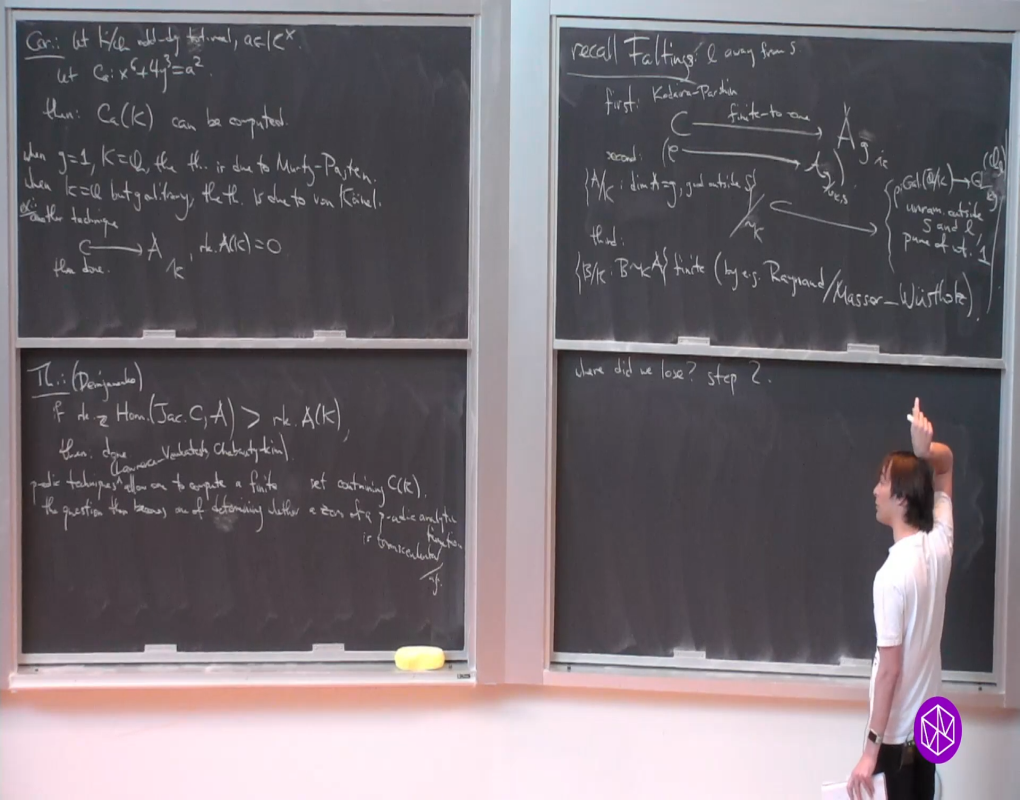 Cor.: let K/Q odd-deg tot. real, a∈K^x.
let C_a: x^6+4y^3=a^2.
then: C_a(K) can be computed.
when g=1, K=Q, the th. is due to Murty-Pasten.
when K=Q but g arbitrary, the th. is due to von Känel.
another technique
C → A /K, rk. A(K)=0
then done.
Th.: (Demjanenko)
if rk._Z Hom.(Jac. C, A) > rk. A(K),
then done
(Lawrence-Venkatesh, Chabauty-Kim)
p-adic techniques ^ allow one to compute a finite set containing C(K).
the question then becomes one of determining whether a zero of a p-adic analytic function
is transcendental
recall Faltings: l away from S
first: Kodaira-Parshin
C finite-to-one → A_g
second:
{A/K: dim A=g, good outside S}/~K → {ρ: Gal.(Q̄/K) →
unram. outside
S and l,
pure of wt. 1
third:
{B/K: B ~_K A} finite (by e.g. Raynaud/Masser-Wüstholz).
where did we lose? step 2.